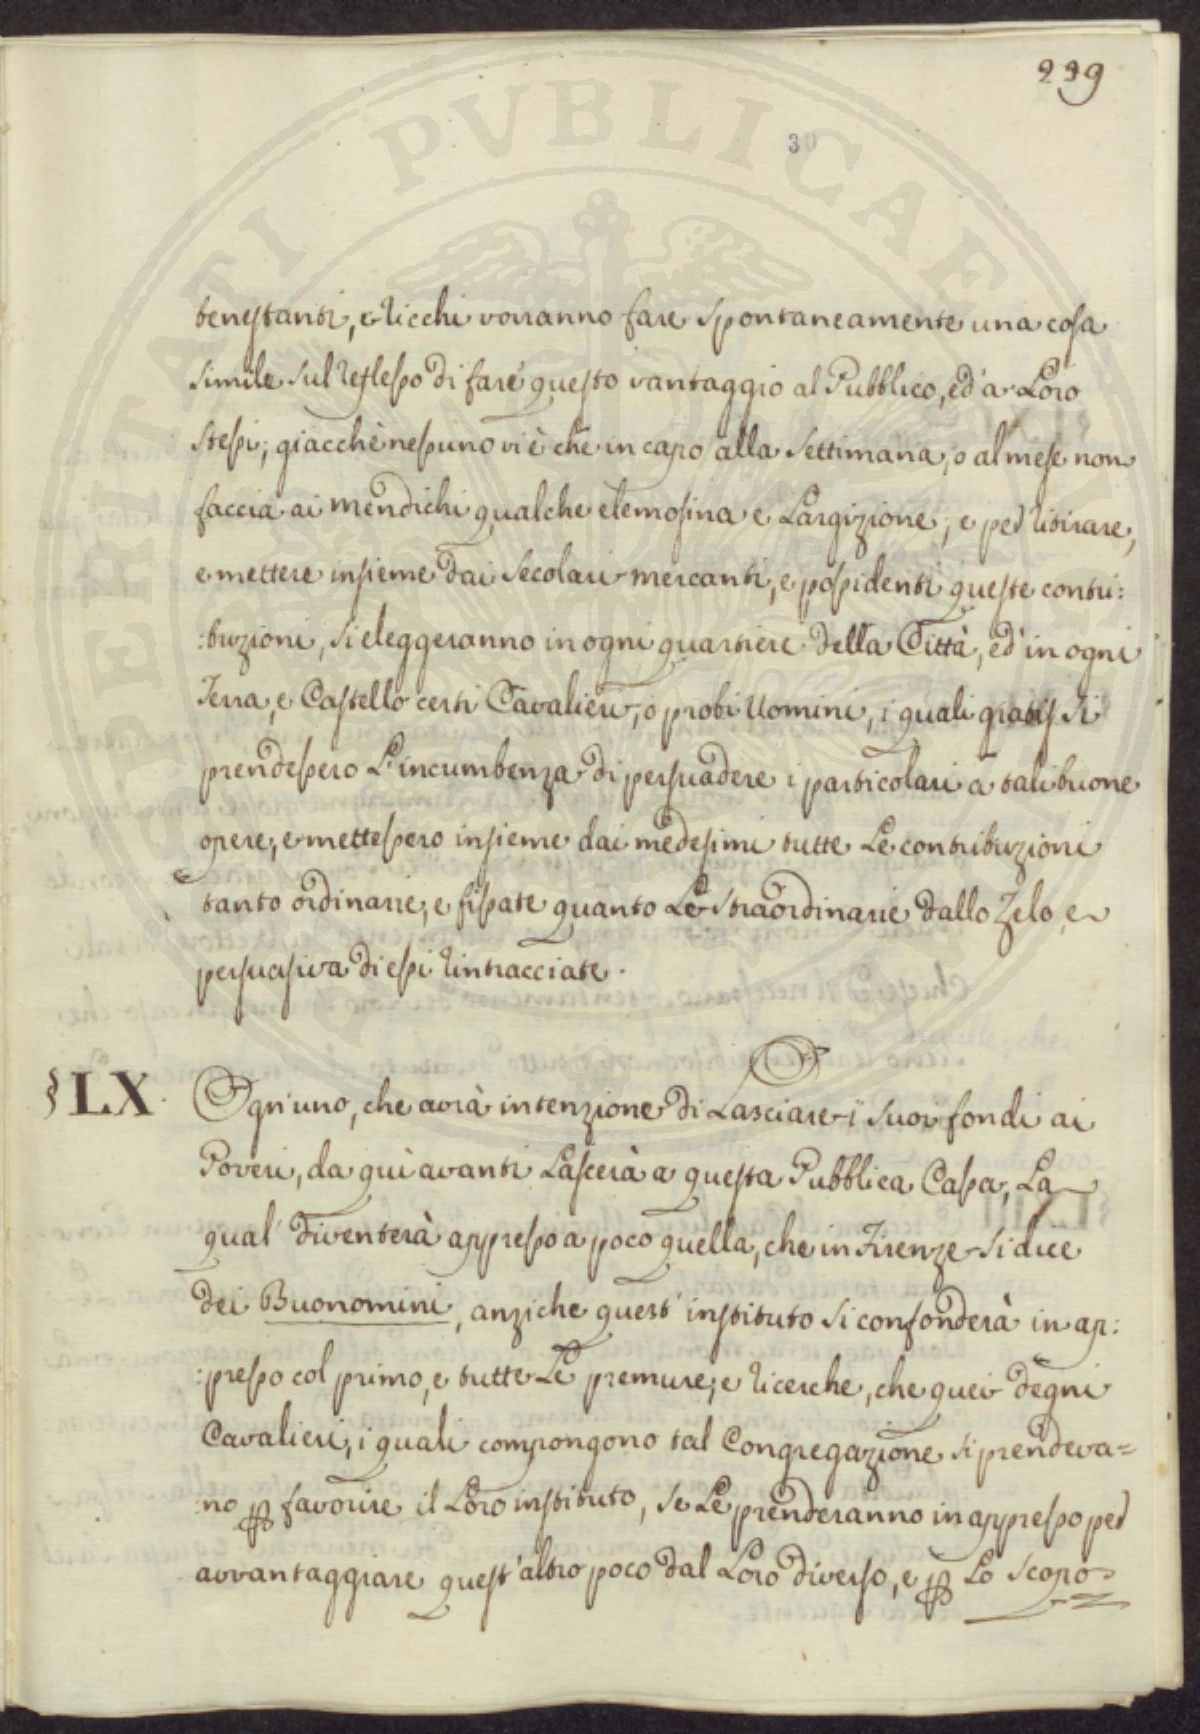 239
30
benestanti, e ricchi vorranno fare spontaneamente una cosa
simile sul reflesso di fare questo vantaggio al Pubblico, ed a Loro
stessi; giacchè nessuno vi è che in capo alla settimana, o al mese non
faccia ai mendichi qualche elemosina e Largizione; e per ritirare,
e mettere insieme dai secolari mercanti, e possidenti queste contri:
:buzioni, si eleggeranno in ogni quartiere della Città, ed in ogni
Terra, e Castello certi Cavalieri, o probi Uomini, i quali gratis si
prendessero L'incumbenza di persuadere i particolari a tali buone
opere, e mettessero insieme dai medesimi tutte Le contribuzioni
tanto ordinarie, e fissate quanto Le straordinarie dallo Zelo, e
persuasiva di essi rintracciate.
§ LX. Ogn'uno, che avrà intenzione di Lasciare i suoi fondi ai
Poveri, da qui avanti Lascerà a questa Pubblica Casa, La
qual diventerà appresso a poco quella, che in Firenze si dice
dei Buonomini, anziche quest' instituto si confonderà in ap:
:presso col primo, e tutte Le premure, e ricerche, che quei degni
Cavalieri, i quali compongono tal Congregazione si prendeva=
:no p favorire il Loro instituto, se Le prenderanno in appresso per
avvantaggiare quest'altro poco dal Loro diverso, e p Lo scopo
PROSPERITATI PVBLICAE